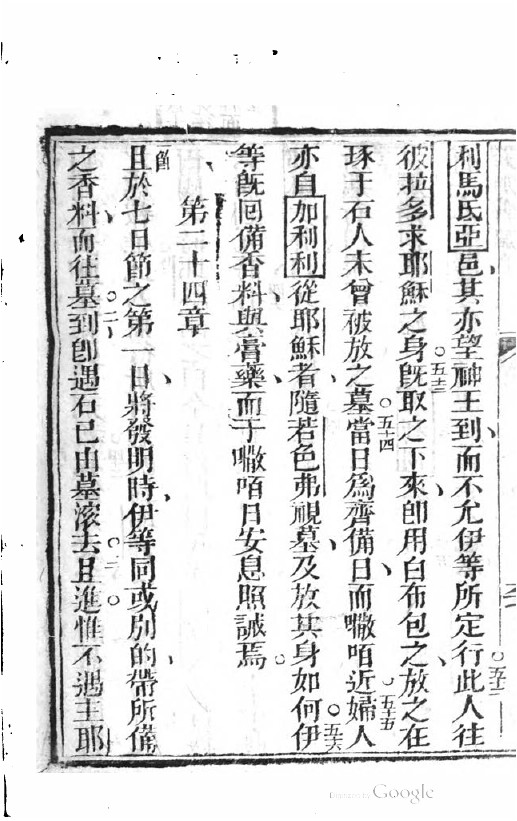 利馬氏亞邑其亦望神王到而不允伊等所定行○五二此人往
彼拉多求耶穌之身○五三既取之下來即用白布包之放之在
琢于石人未曾被放之墓○五四當日為齊備日而嚫咟近○五五婦人
亦自加利利從耶穌者隨若色弗視墓及放其身如何○五六伊
等既囘備香料與膏藥而于嚫咟日安息照誡焉○
第二十四章
節
且於七日節之第一日將發明時伊等同或別的帶所備
之香料而往墓○二到即遇石已由墓滚去○三且進惟不遇主耶
Digitized by Google